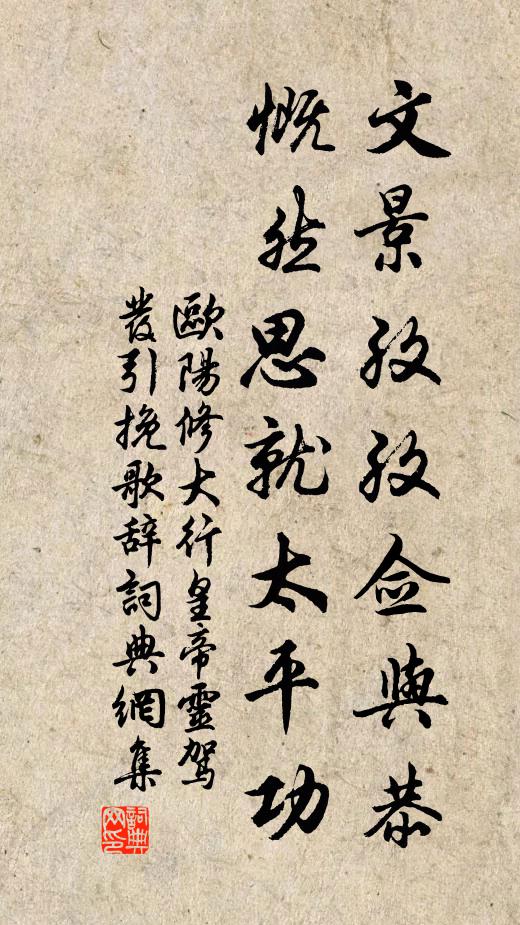 文景孜孜儉與恭
慨然思就太平功
歐陽修大行皇帝靈駕
發引挽歌辭詞典網集
詞典网印